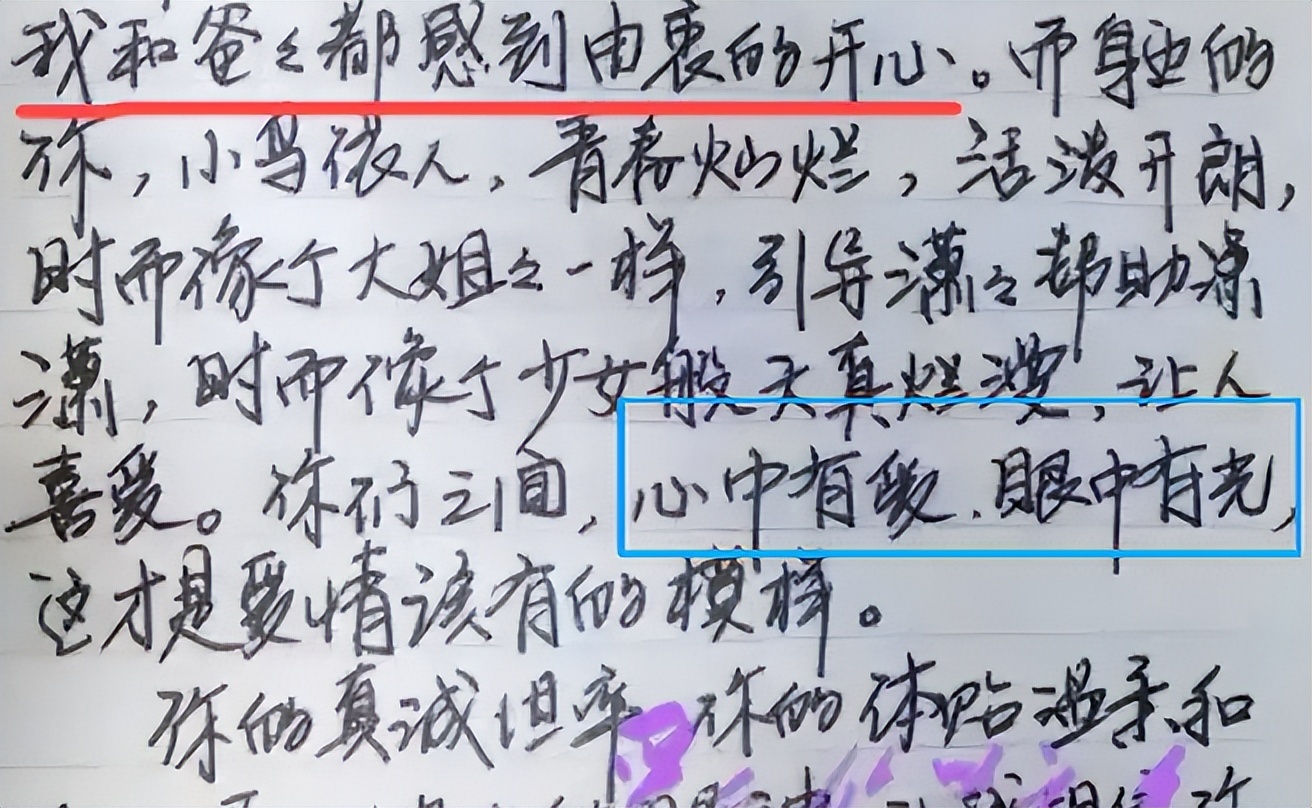 我和爸々都感到由衷的开心。而身边的
你，小鸟依人，青春灿烂，活泼开朗，
时而像个大姐々一样，引导潇々帮助潇
潇，时而像个少女般天真烂漫，让人
喜爱。你们之间，心中有爱.眼中有光，
这才是爱情该有的模样。
你的真诚坦率 你的体贴温柔和